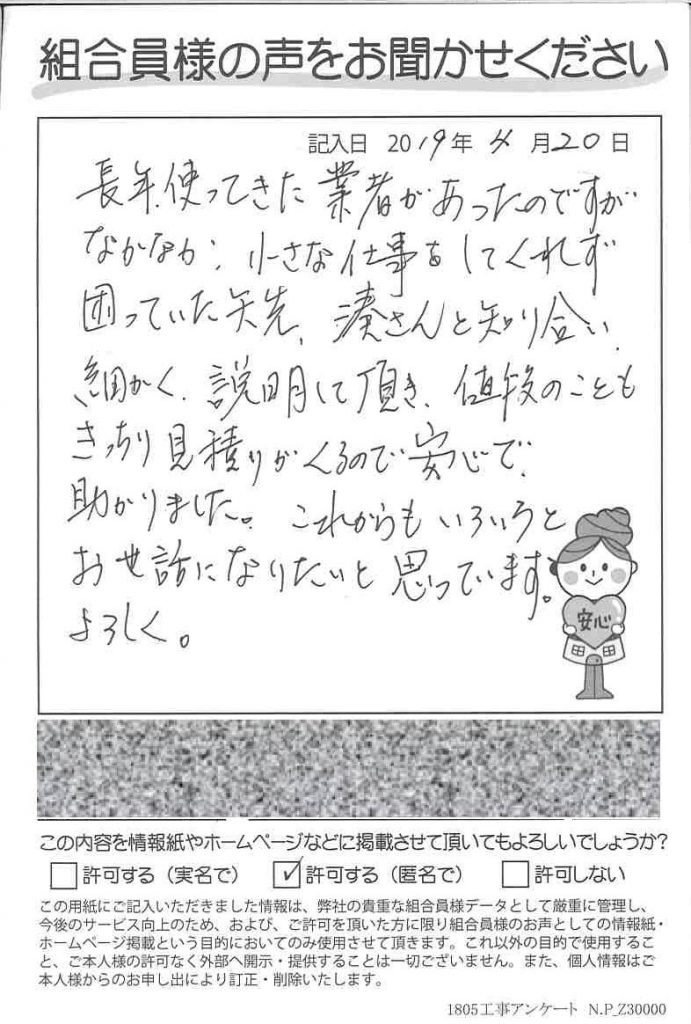 組合員様の声をお聞かせください
記入日 2019年 4月20日
長年使ってきた業者があったのですが
なかなか、小さな仕事をしてくれず
困っていた矢先、湊さんと知り合い、
細かく、説明して頂き、値段のことも
きっちり見積りがくるので安心で、
助かりました。これからもいろいろと
お世話になりたいと思っています。
よろしく。
安心
この内容を情報紙やホームページなどに掲載させて頂いてもよろしいでしょうか?
□許可する（実名で） ☑許可する（匿名で） □許可しない
この用紙にご記入いただきました情報は、弊社の貴重な組合員様データとして厳重に管理し、
今後のサービス向上のため、および、ご許可を頂いた方に限り組合員様のお声としての情報紙・
ホームページ掲載という目的においてのみ使用させて頂きます。これ以外の目的で使用するこ
と、ご本人様の許可なく外部へ開示・提供することは一切ございません。また、個人情報はご
本人様からのお申し出により訂正・削除いたします。
1805工事アンケート N.P_Z30000